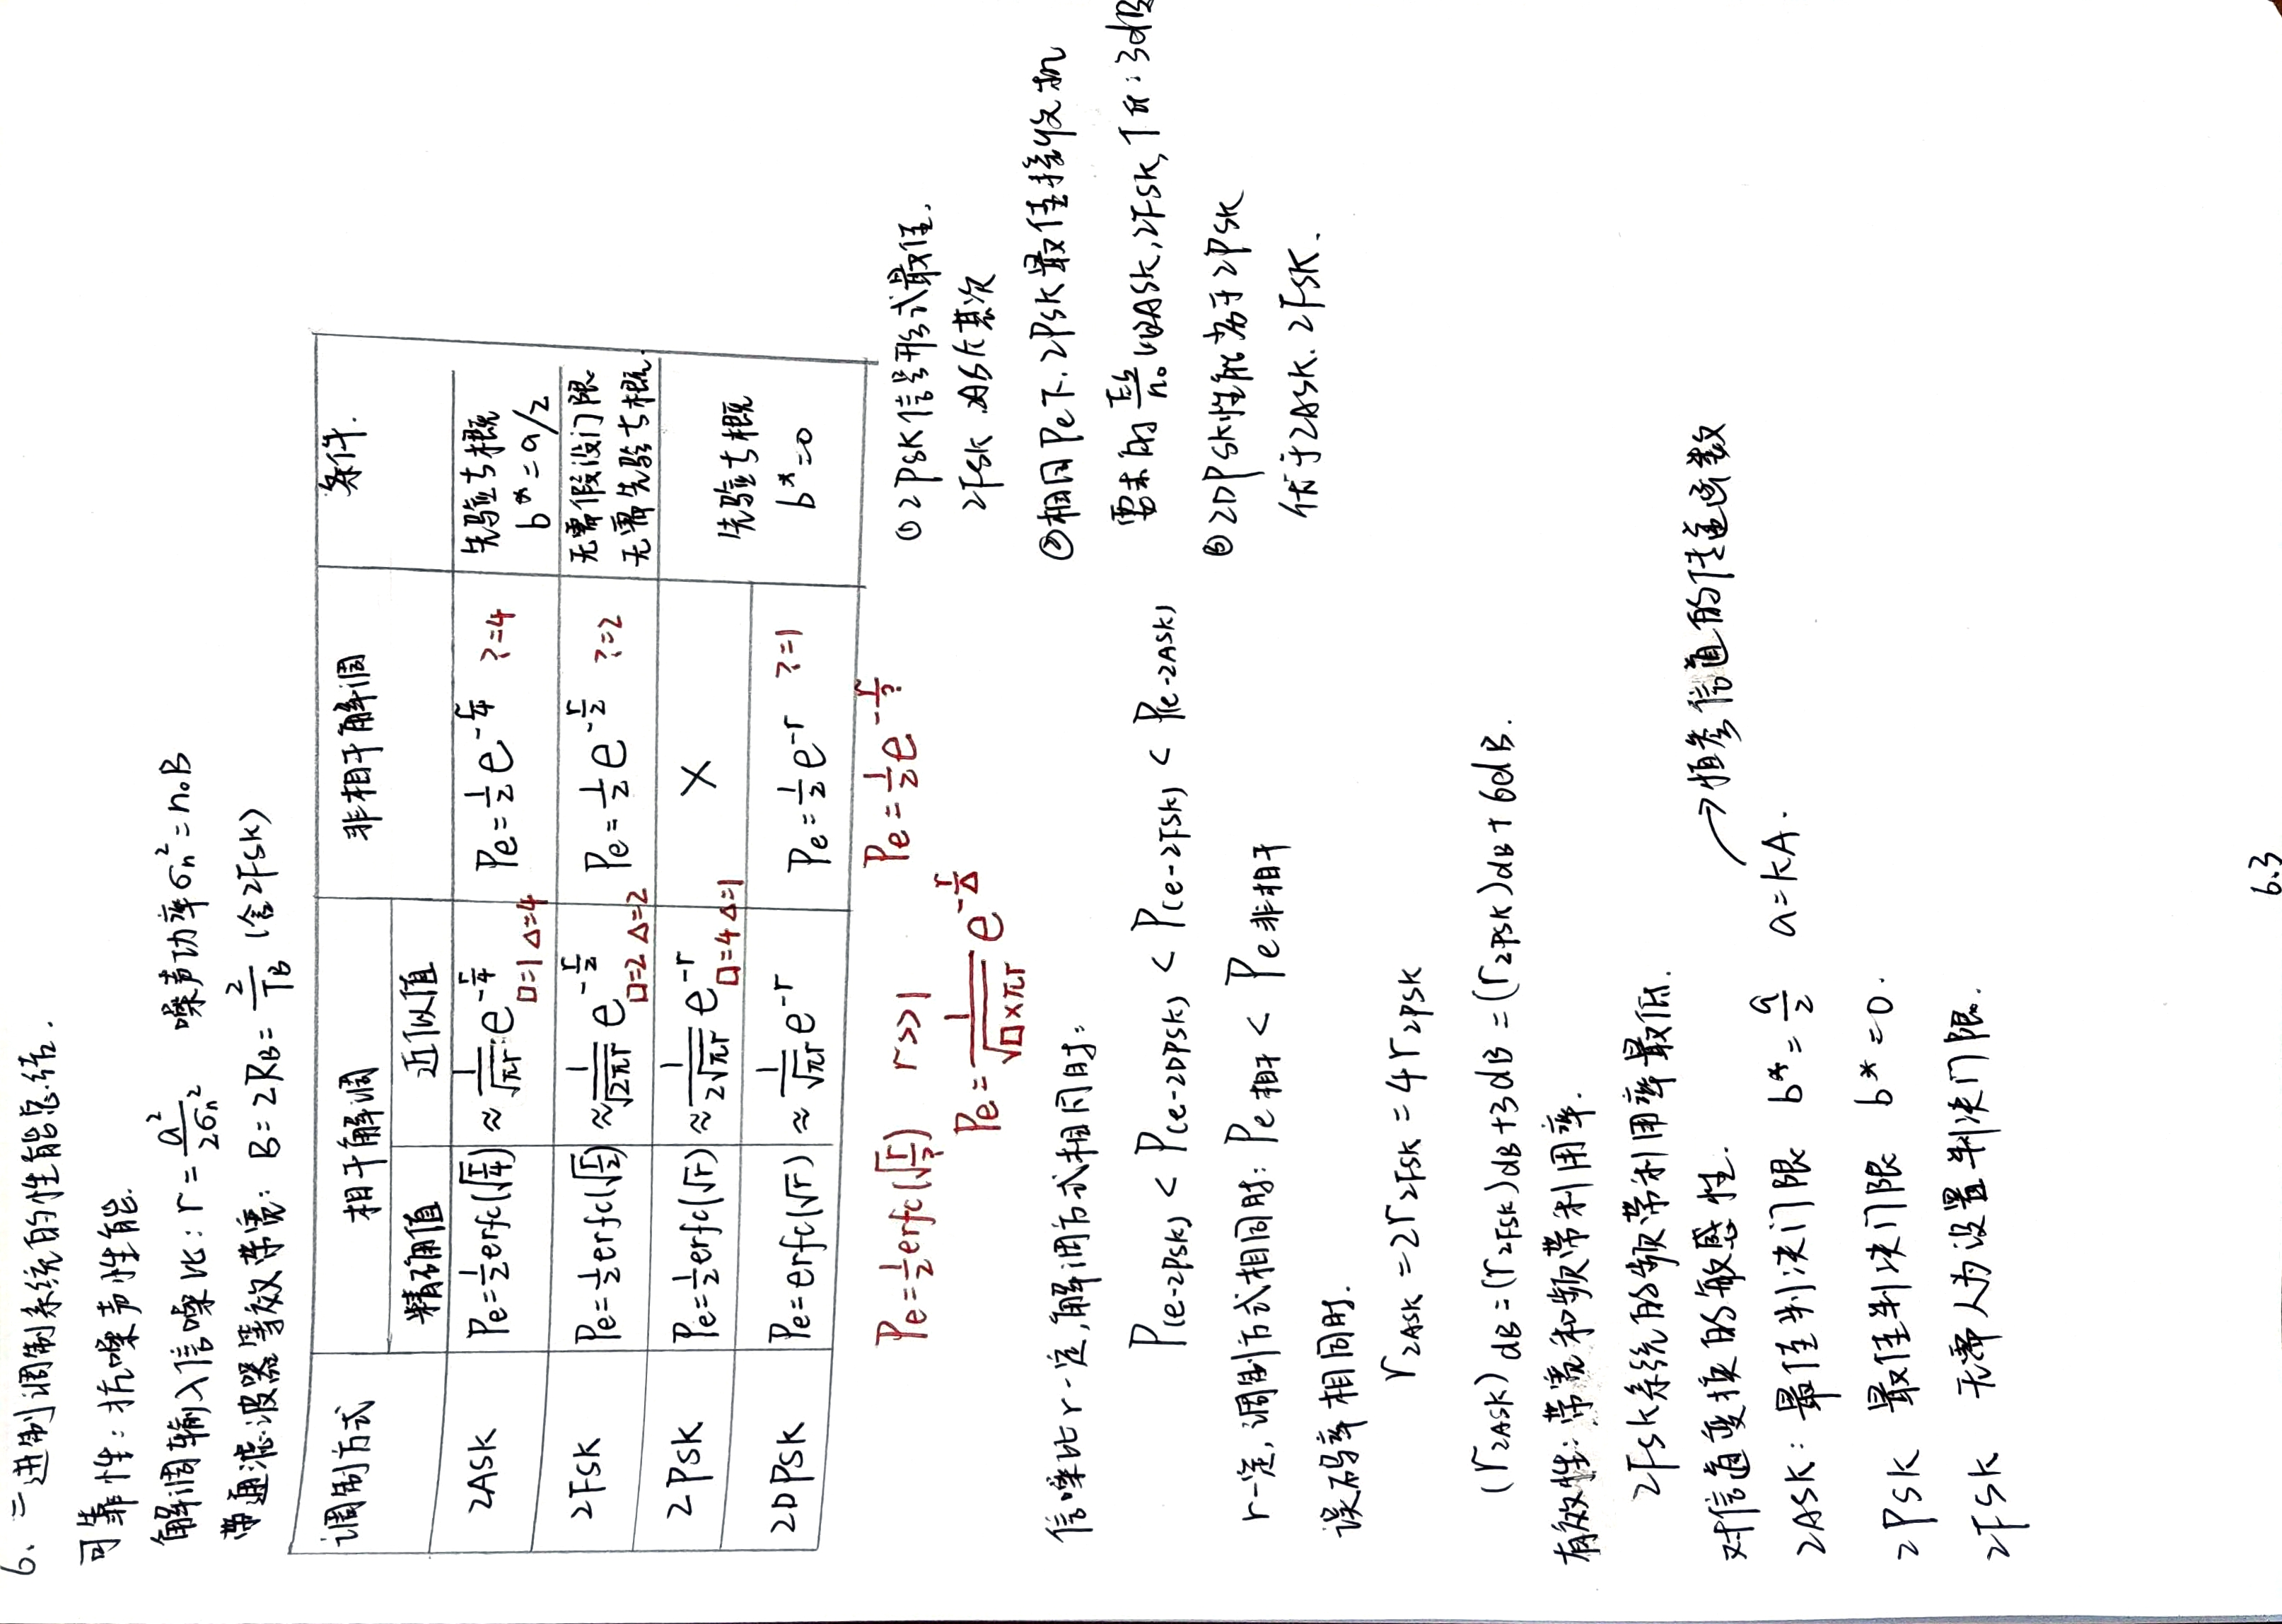 6、二进制调制系统的性能总结.
可靠性: 抗噪声性能.
解调输入信噪比: r = a²/2σn² 噪声功率σn² = n₀B
带通滤波器等效带宽: B = 2RB = 2/TB (含2FSK)
调制方式 相干解调 非相干解调 条件.
精确值 近似值
2ASK Pe = 1/2 erfc(√(r/4)) ≈ 1/√(πr) · e^(-r/4) □=1 △=4 Pe = 1/2 e^(-r/4) ?=4 先验等概 b* = a/2
2FSK Pe = 1/2 erfc(√(r/2)) ≈ 1/√(2πr) e^(-r/2) □=2 △=2 Pe = 1/2 e^(-r/2) ?=2 无需假设门限 无需先验等概.
2PSK Pe = 1/2 erfc(√r) ≈ 1/(2√(πr)) e^(-r) □=4 △=1 ×
先验等概 b* = 0
2DPSK Pe = erfc(√r) ≈ 1/√(πr) e^(-r) Pe = 1/2 e^(-r) ?=1
Pe = 1/2 erfc(√(r/?)) r>>1 Pe = 1/2 e^(-r/?)
Pe = 1/√(□×πr) e^(-r/△)
① 2PSK信号形式最佳,
2FSK 2ASK其次
② 相同Pe下, 2PSK最佳接收机
要求的 Eb/n₀ 比2ASK, 2FSK, 3dB
③ 2DPSK性能劣于2PSK
优于2ASK. 2FSK.
信噪比r一定, 解调方式相同时:
P(e-2PSK) < P(e-2DPSK) < P(e-2FSK) < P(e-2ASK)
r一定, 调制方式相同时: Pe相干 < Pe非相干
误码率相同时.
r2ASK = 2r2FSK = 4r2PSK
(r2ASK)dB = (r2FSK)dB + 3dB = (r2PSK)dB + 6dB.
有效性: 带宽和频带利用率.
2FSK系统的频带利用率最低.
对信道变换的敏感性.
→恒参信道的传递函数
2ASK: 最佳判决门限 b* = a/2 a = kA.
2PSK 最佳判决门限 b* = 0.
2FSK 无需人为设置判决门限.
6.3